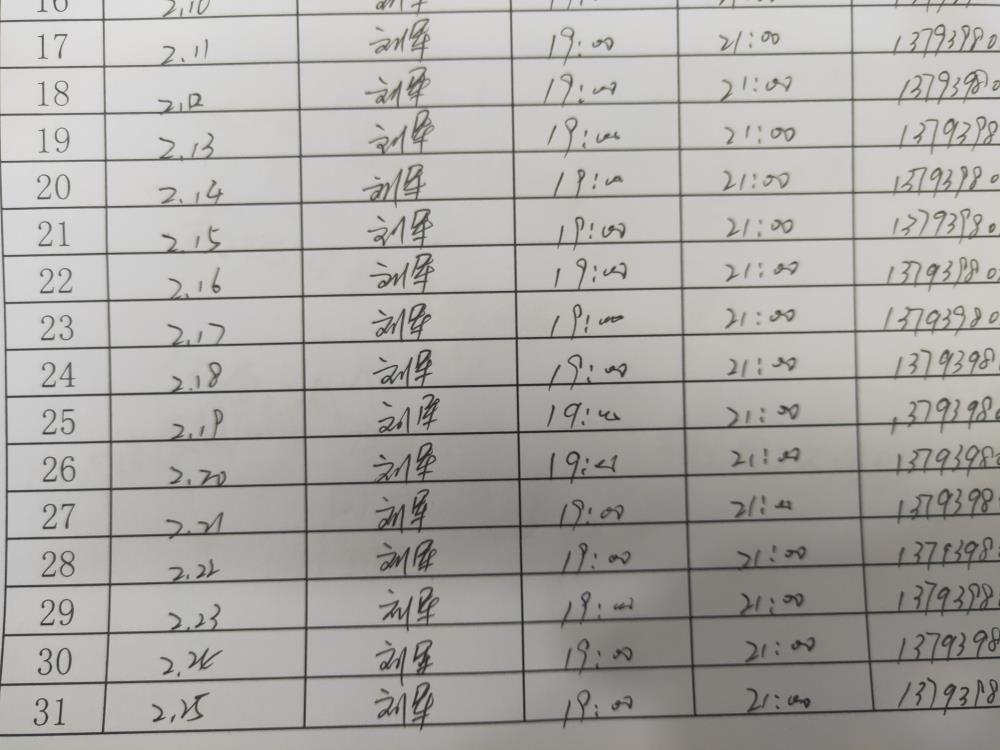 16 2.10
17 2.11 刘军 19:00 21:00 13793980
18 2.12 刘军 19:00 21:00 13793980
19 2.13 刘军 19:00 21:00 1379398
20 2.14 刘军 19:00 21:00 13793980
21 2.15 刘军 19:00 21:00 13793980
22 2.16 刘军 19:00 21:00 13793980
23 2.17 刘军 19:00 21:00 13793980
24 2.18 刘军 19:00 21:00 1379398
25 2.19 刘军 19:00 21:00 1379398
26 2.20 刘军 19:00 21:00 1379398
27 2.21 刘军 19:00 21:00 1379398
28 2.22 刘军 19:00 21:00 1379398
29 2.23 刘军 19:00 21:00 1379398
30 2.24 刘军 19:00 21:00 1379398
31 2.25 刘军 19:00 21:00 1379398